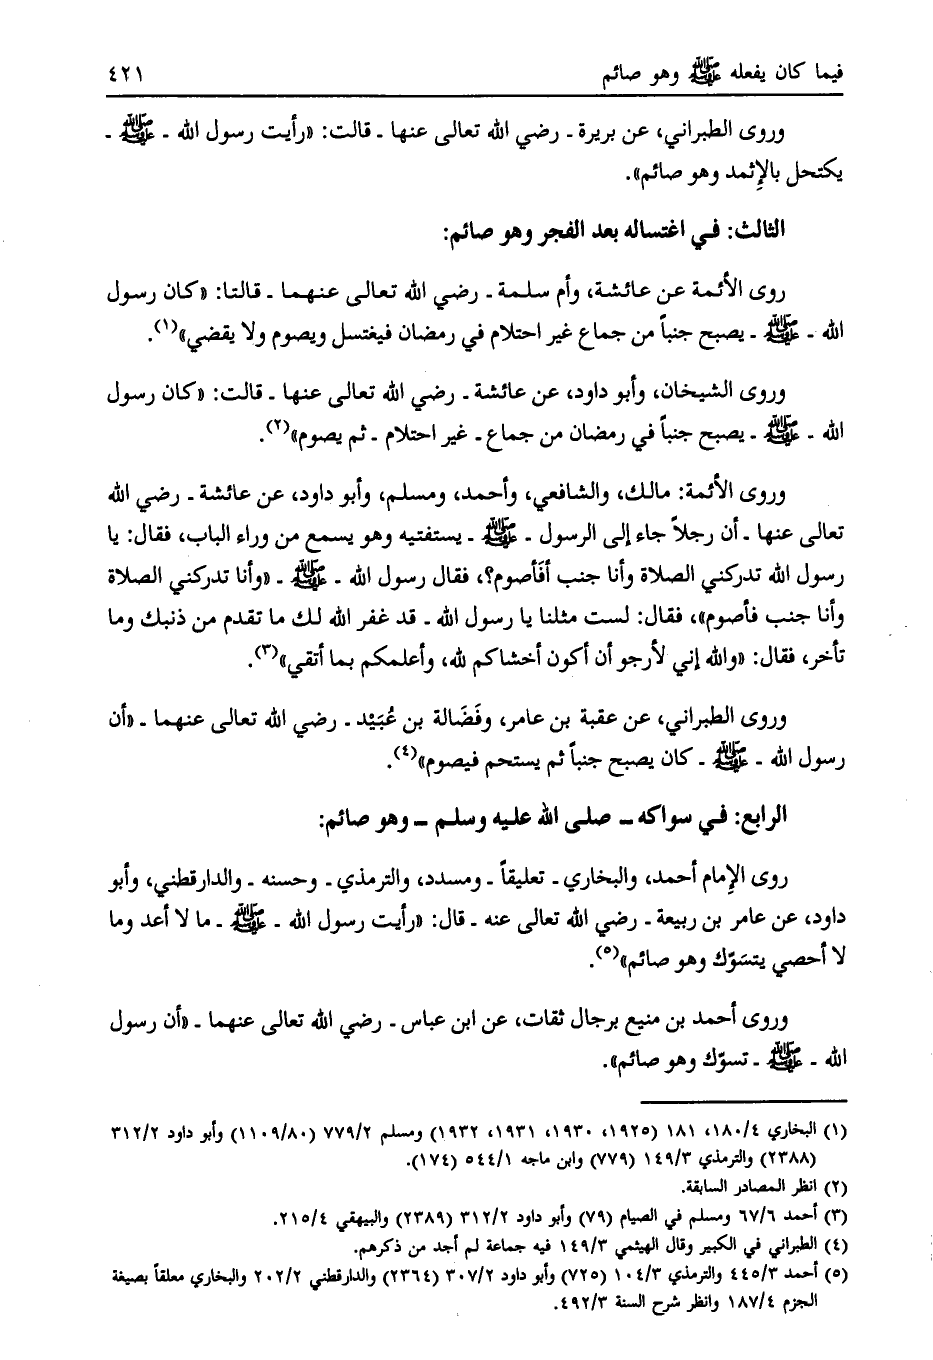 فيما كان يفعله ﷺ وهو صائم ٤٢١
وروى الطبراني، عن بريرة ـ رضي الله تعالى عنها ـ قالت: «رأيت رسول الله ـ ﷺ ـ
يكتحل بالإثمد وهو صائم».
الثالث: في اغتساله بعد الفجر وهو صائم:
روى الأئمة عن عائشة، وأم سلمة ـ رضي الله تعالى عنهما ـ قالتا: «كان رسول
الله ـ ﷺ ـ يصبح جنباً من جماع غير احتلام في رمضان فيغتسل ويصوم ولا يقضي»(١).
وروى الشيخان، وأبو داود، عن عائشة ـ رضي الله تعالى عنها ـ قالت: «كان رسول
الله ـ ﷺ ـ يصبح جنباً في رمضان من جماع ـ غير احتلام ـ ثم يصوم»(٢).
وروى الأئمة: مالك، والشافعي، وأحمد، ومسلم، وأبو داود، عن عائشة ـ رضي الله
تعالى عنها ـ أن رجلاً جاء إلى الرسول ـ ﷺ ـ يستفتيه وهو يسمع من وراء الباب، فقال: يا
رسول الله تدركني الصلاة وأنا جنب أفَأصوم؟، فقال رسول الله ـ ﷺ ـ «وأنا تدركني الصلاة
وأنا جنب فأصوم»، فقال: لست مثلنا يا رسول الله ـ قد غفر الله لك ما تقدم من ذنبك وما
تأخر، فقال: «والله إني لأرجو أن أكون أخشاكم لله، وأعلمكم بما أتقي»(٣).
وروى الطبراني، عن عقبة بن عامر، وفَضَالة بن عُبَيْد ـ رضي الله تعالى عنهما ـ «أن
رسول الله ـ ﷺ ـ كان يصبح جنباً ثم يستحم فيصوم»(٤).
الرابع: في سواكه ـ صلى الله عليه وسلم ـ وهو صائم:
روى الإمام أحمد، والبخاري ـ تعليقاً ـ ومسدد، والترمذي ـ وحسنه ـ والدارقطني، وأبو
داود، عن عامر بن ربيعة ـ رضي الله تعالى عنه ـ قال: «رأيت رسول الله ـ ﷺ ـ ما لا أعد وما
لا أحصي يتسَوّك وهو صائم»(٥).
وروى أحمد بن منيع برجال ثقات، عن ابن عباس ـ رضي الله تعالى عنهما ـ «أن رسول
الله ـ ﷺ ـ تسوّك وهو صائم».
(١) البخاري ١٨٠/٤، ١٨١ (١٩٢٥، ١٩٣٠، ١٩٣١، ١٩٣٢) ومسلم ٧٧٩/٢ (١١٠٩/٨٠) وأبو داود ٣١٢/٢
(٢٣٨٨) والترمذي ١٤٩/٣ (٧٧٩) وابن ماجه ٥٤٤/١ (١٧٤).
(٢) انظر المصادر السابقة.
(٣) أحمد ٦٧/٦ ومسلم في الصيام (٧٩) وأبو داود ٣١٢/٢ (٢٣٨٩) والبيهقي ٢١٥/٤.
(٤) الطبراني في الكبير وقال الهيثمي ١٤٩/٣ فيه جماعة لم أجد من ذكرهم.
(٥) أحمد ٤٤٥/٣ والترمذي ١٠٤/٣ (٧٢٥) وأبو داود ٣٠٧/٢ (٢٣٦٤) والدارقطني ٢٠٢/٢ والبخاري معلقاً بصيغة
الجزم ١٨٧/٤ وانظر شرح السنة ٤٩٢/٣.